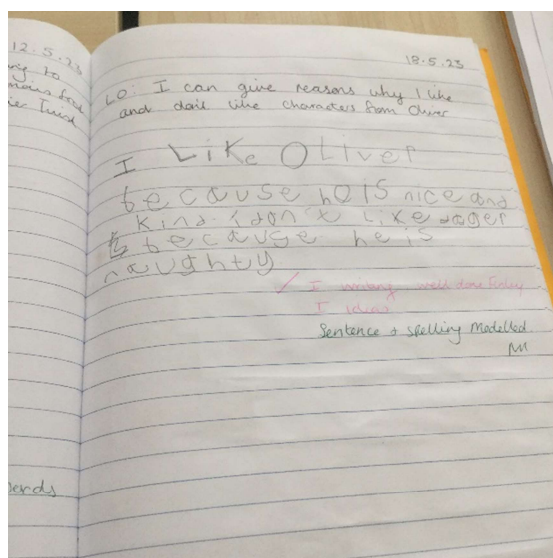 12.5.23
ng to
18.5.23
LO: I can give reasons why I like
and don't like characters from Oliver
I Like Oliver
because he is nice and
kind. I don't like
because he is
naughty
I writing well done
I ideas
Sentence + spelling Modelled.